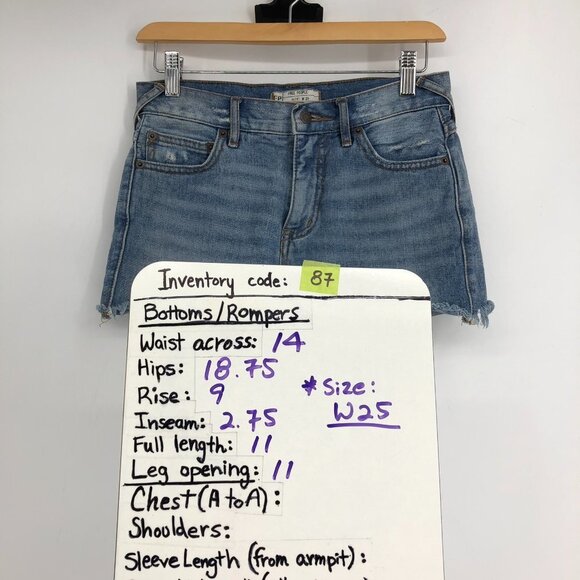 FREE PEOPLE
Inventory code: 87
Bottoms/Rompers
Waist across: 14
Hips: 18.75
Rise: 9
* Size:
W25
Inseam: 2.75
Full length: 11
Leg opening: 11
Chest (A to A):
Shoulders:
Sleeve Length (from armpit):